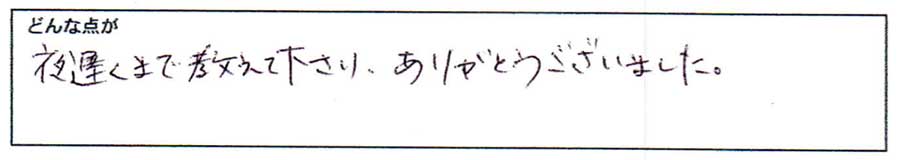 どんな点が
夜遅くまで教えて下さり、ありがとうございました。